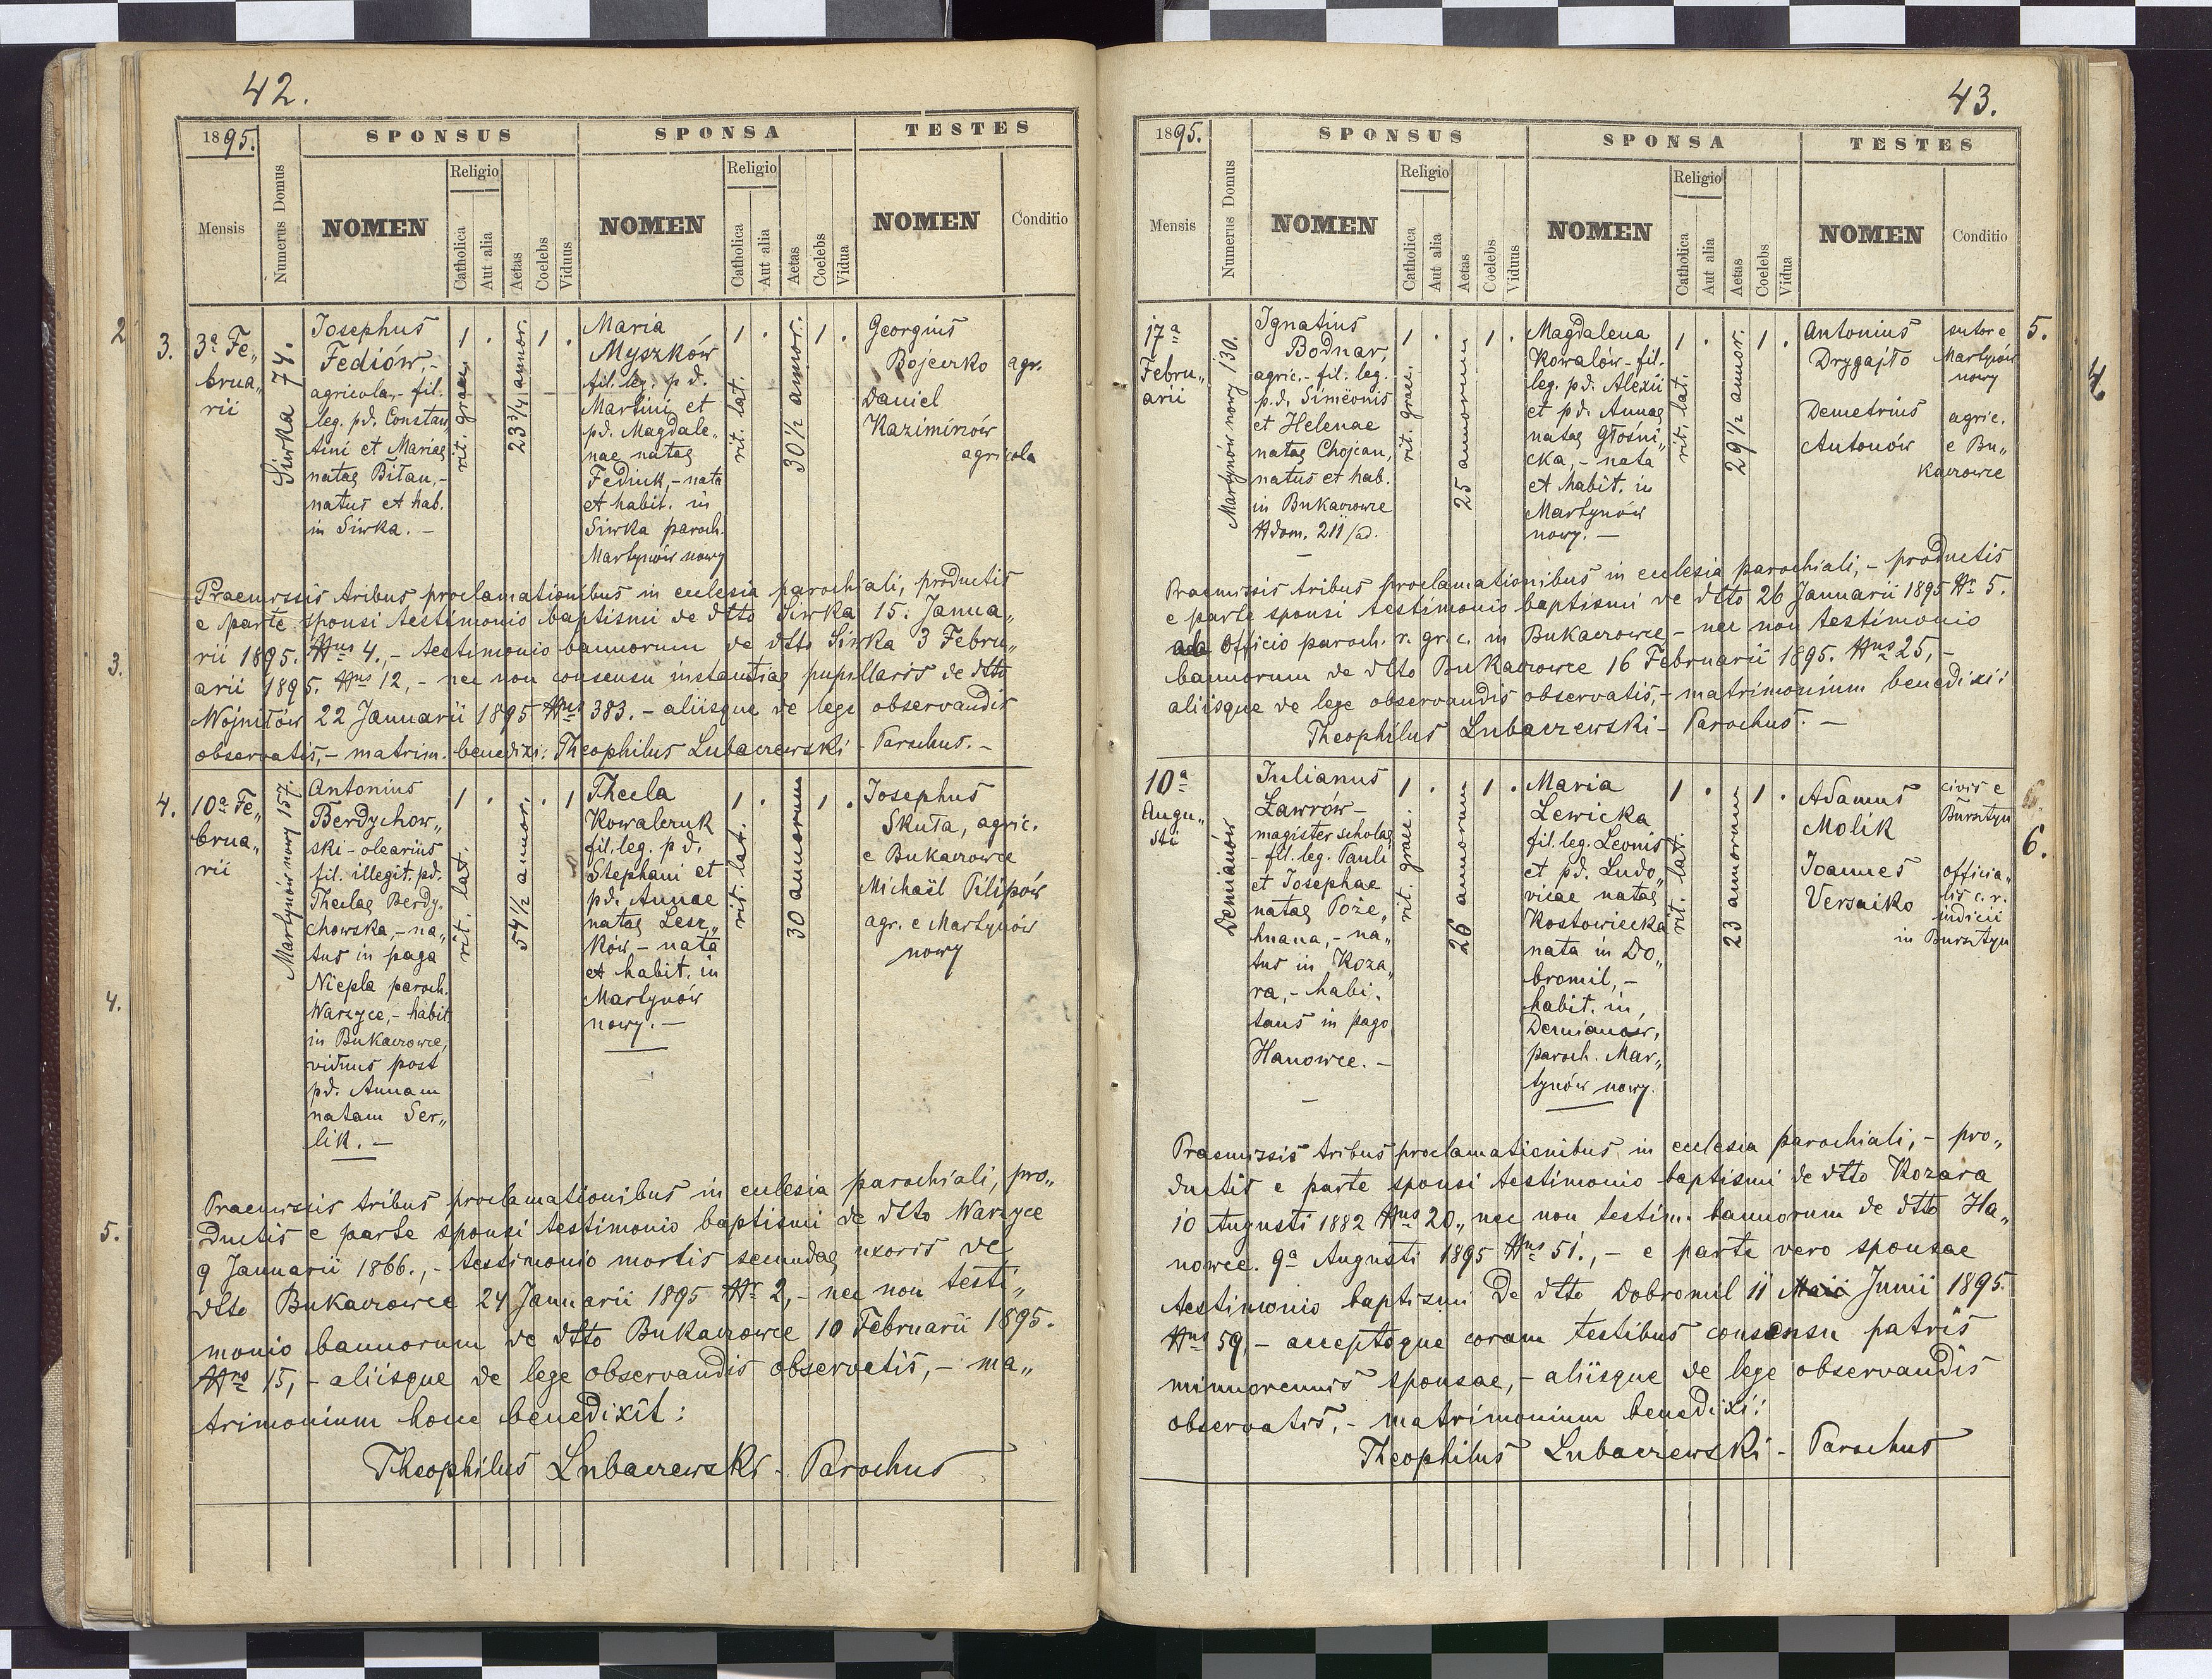 42.
1895.
SPONSUS
SPONSA
TESTES
Mensis
Numerus Domus
NOMEN
Religio
Catholica
Aut alia
Aetas
Coelebs
Viduus
NOMEN
Religio
Catholica
Aut alia
Aetas
Coelebs
Vidua
NOMEN
Conditio
2
3.
4.
5.
3.
3ª Fe„
brua„
rii
Siwka 74.
Josephus
Fediów,-
agricola,- fil.
leg. pd. Constan
tini et Mariae
natae Bitau,-
natus et hab.
in Siwka. –
1 .
rit. graec.
23 3/4 annor.
1 .
Maria
Myszków
fil. leg. p d.
Martini et
pd. Magdale„
nae natae
Fediuk,- nata
et habit. in
Siwka paroch.
Martynów nowy
1 .
rit. lat.
30 1/2 annor.
1 .
Georgius
Bojeczko agr.
Daniel
Kazimirów
agricola
Praemissis tribus proclamationibus in eclesia parochiali, productis
e parte sponsi testimonio baptismi de dtto Siwka 15. Janua„
rii 1895. Nus 4.,- testimonio bannorum de dtto Siwka 3 Febru„
arii 1895. Nus 12,- nec non consensu instantiae pupillaris de dtto
Wojniłów 22 Januarii 1895 Nus 383. - aliisque de lege observandis
observatis,- matrim. benedixi: Theophilus Lubaczewski - Parochus. –
4.
10ª Fe„
brua„
rii
Martynów nowy 157.
Antonius
Berdychow„
ski - olearius
fil. illegit. pd.
Theclae Berdy„
chowska,- na„
tus in paga
Niepla paroch.
Warzyce,- habit
in Bukaczowce,
viduus post
pd. Annam
natam Ser„
lik. –
1 .
rit. lat.
54 1/2 annor.
. 1
Thecla
Kowalczuk
fil. leg. p d.
Stephani et
pd. Annae
natae Lesz„
ków - nata
et habit. in
Martynów
nowy. –
1 .
rit. lat.
30 annorum
1 .
Josephus
Skuta, agric.
e Bukaczowce
Michaël Pilipów
agr. e Martynów
nowy
Praemissis tribus proclamationibus in eclesia parochiali, pro„
ductis e parte sponsi testimonio baptismi de dtto Warzyce
9 Januarii 1866.,- testimonio mortis secundae uxoris de
dtto Bukaczowce 24 Januarii 1895 Nr 2,- nec non testi„
monio bannorum de dtto Bukaczowce 10 Februarii 1895.
Nro 15,- aliisque de lege observandis observatis,- ma„
trimonium hocce benedixit:
Theophilus Lubaczewski - Parochus
43.
1895.
SPONSUS
SPONSA
TESTES
Mensis
Numerus Domus
NOMEN
Religio
Catholica
Aut alia
Aetas
Coelebs
Viduus
NOMEN
Religio
Catholica
Aut alia
Aetas
Coelebs
Vidua
NOMEN
Conditio
17ª
Febru„
arii
Martynów nowy 130.
Ignatius
Bodnar,
agric.- fil. leg.
p.d. Simeonis
et Helenae
natae Chojcan,
natus et hab.
in Bukaczowce
Ndom. 211/ad.
1 .
rit. graec.
25 annorum
1 .
Magdalena
Kowalów - fil.
leg. pd. Alexii
et pd. Annae
natae Głośni„
cka,- nata
et habit. in
Martynów
nowy. –
1 .
rit. lat.
29 1/2 annor.
1 .
Antonius
Drygajło
sutor e
Martynów
nowy
Demetrius
Antonów
agric.
e Bu„
kaczowce
5.
Praemissis tribus proclamationibus in eclesia parochiali,- productis
e parte sponsi testimonio baptismi de dtto 26 Januarii 1895 Nr 5.
Officio paroch. r. gr. c. in Bukaczowce - nec non testimonio
bannorum de dtto Bukaczowce 16 Februarii 1895. Nus 25,-
aliisque de lege observandis observatis,- matrimonium benedixi:
Theophilus Lubaczewski - Parochus. –
10ª
Augu„
sti
Demianów
Julianus
Ławrów -
magister scholae
- fil. leg. Pauli
et Josephae
natae Poże„
hnana,- na„
tus in Koza„
ra,- habi„
tans in pago
Hanowce. –
1 .
rit. graec.
26 annorum
1 .
Maria
Lewicka
fil. leg. Leonis
et pd. Ludo„
vicae natae
Kostowiecka
nata in Do„
bromil,-
habit. in
Demianów,
paroch. Mar„
tynów nowy.
1 .
rit. lat.
23 annorum
1 .
Adamus
Molik
civis e
Bursztyn
Joannes
Versaiko
officia„
lis c. r.
iudicii
in Bursztyn
6.
6.
Praemissis tribus proclamationibus in eclesia parochiali,- pro„
ductis e parte sponsi testimonio baptismi de dtto Kozara
10 Augusti 1882 Nus 20„ nec non testim. bannorum de dtto Ha„
nowce. 9ª Augusti 1895 Nus 51.,- e parte vero sponsae
testimonio baptismi De dtto Dobromil 11 Maii Junii 1895.
Nus 59,- acceptoque coram testibus consensu patris
minnorennis sponsae,- aliisque de lege observandis
observatis,- matrimonium benedixi:
Theophilus Lubaczewski - Parochus